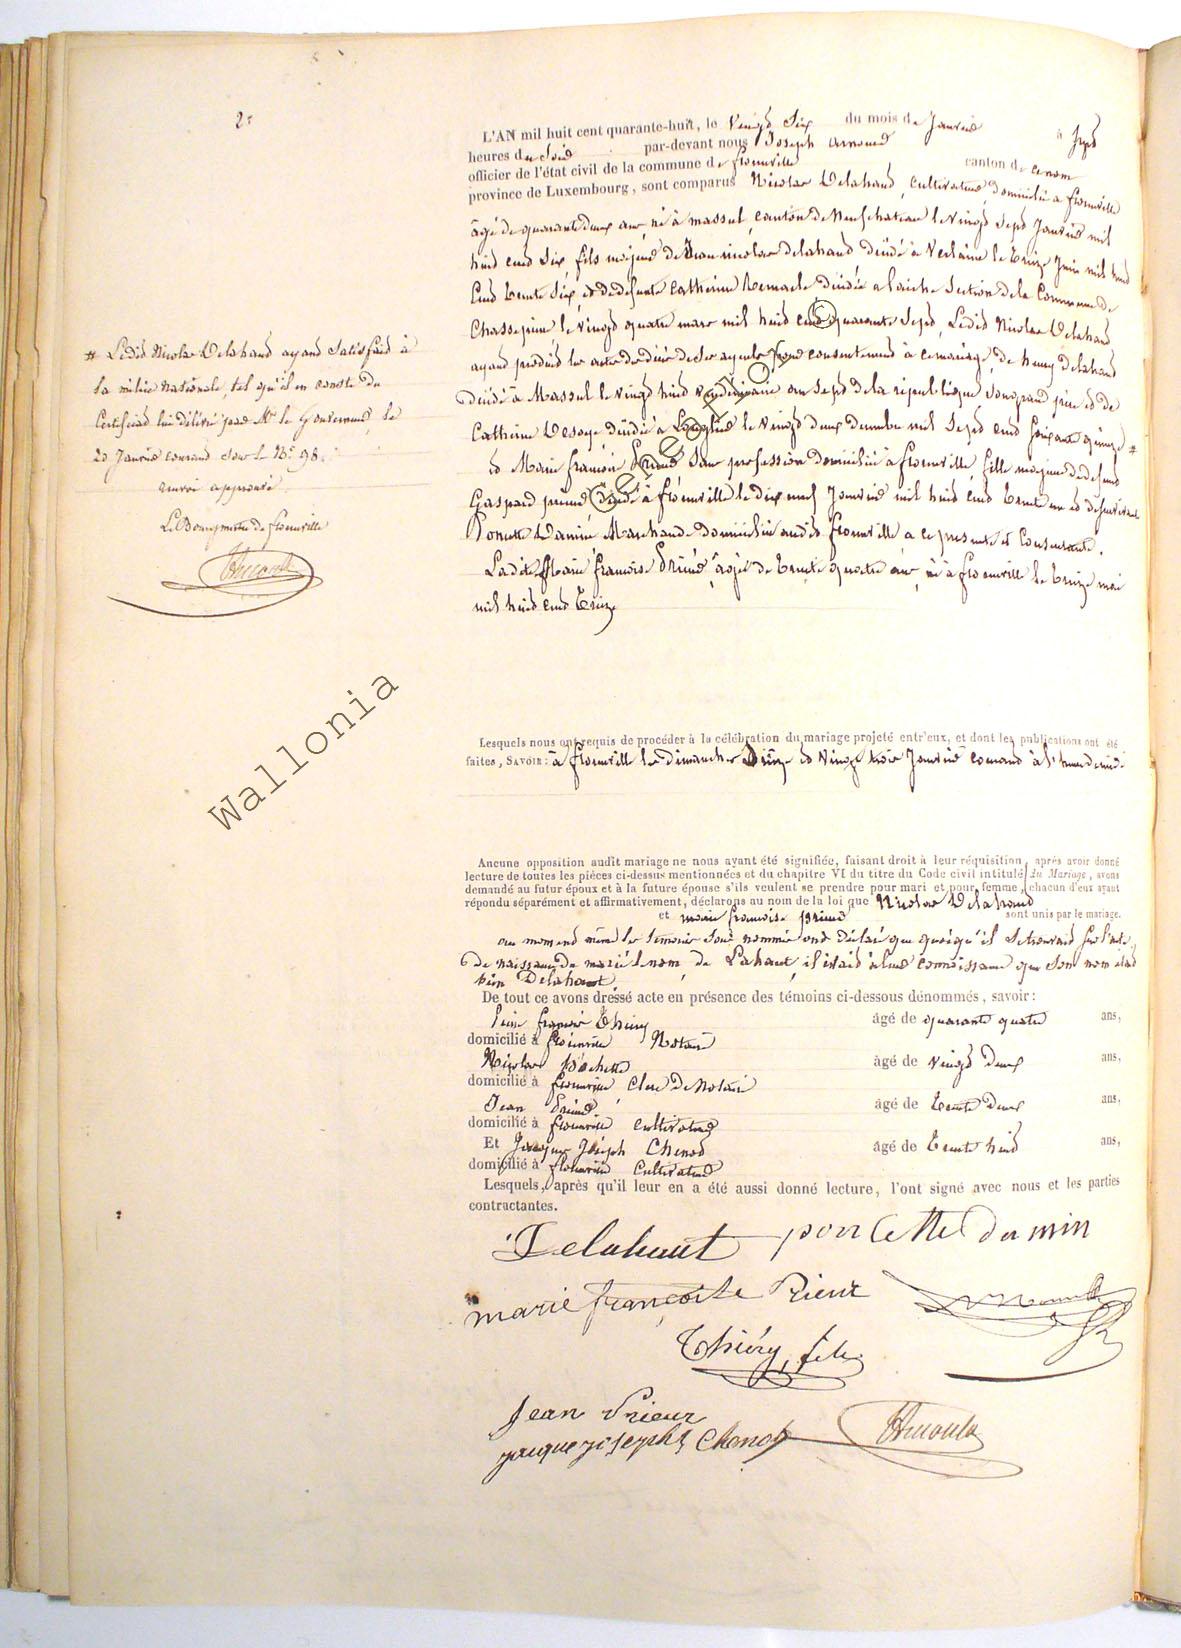 2
L'AN mil huit cent quarante-huit, le vingt Six du mois de Janvier à Sept
heures du Soir par-devant nous Joseph Arnould
officier de l'état civil de la commune de florenville canton de ce nom
province de Luxembourg, sont comparus Nicolas Delahaut, cultivateur, domicilié a florenville
âgé de quarante deux ans né à massul, canton de Neufchateau le vingt Sept Janvier mil
huit cent Six, fils majeur de Jean nicolas delahaut décédé à Verlaine le treize Juin mil huit
Cent trente Six, et de defunte Catherine Remacle décédée a laiche Section de la Commune de
Chassepierre le vingt quatre mars mil huit cent quarante Sept, Ledit Nicolas Delahaut
ayant produit les actes de décès de Ses ayeuls pour consentement à ce mariage, de henry delahaut
décédé à Massul le vingt huit vendémiaire an Sept de la république Son grand père et de
Catherine décédée à Longlier le vingt deux decembre mil Sept cent Soixante quinze #
et Marie françoise Prieur Sans profession domiciliée à florenville, fille majeure de defunt
Gaspard prieur décédé à florenville le dix neuf Janvier mil huit cent trente un et de Survivante
Poncette Damin Marchande domiciliée audit florenville a ce presente et Consentante.
Ladite Marie françoise Prieur, âgée de trente quatre ans, né à florenville le treize mai
mil huit cent treize
# Ledit Nicolas Delahaut ayant Satisfait à
la milice Nationale, tel qu'il en conste du
Certificat lui délivré par Mr le Gouverneur, le
20 Janvier courant Sous le No 98.
renvoi approuvé
Le Bourgmestre de florenville
Arnould
Wallonia
Lesquels nous ont requis de procéder à la célébration du mariage projeté entr'eux, et dont les publications ont été
faites, SAVOIR: à florenville les dimanches Seize et Vingt trois Janvier courant à l'heure de midi
Aucune opposition audit mariage ne nous ayant été signifiée, faisant droit à leur réquisition, après avoir donné
lecture de toutes les pièces ci-dessus mentionnées et du chapitre VI du titre du Code civil intitulé du Mariage, avons
demandé au futur époux et à la future épouse s'ils veulent se prendre pour mari et pour femme, chacun d'eux ayant
répondu séparément et affirmativement, déclarons au nom de la loi que Nicolas Delahaut
et marie françoise prieur sont unis par le mariage.
au moment même les temoins Sous nommés ont déclaré que quoiqu'il Se trouvait Sur l'acte
de naissance du marié le nom de Lahaut, il était à leur connaissance que Son nom était
bien Delahaut
De tout ce avons dressé acte en présence des témoins ci-dessous dénommés, savoir:
françois Thiery âgé de quarante quatre ans,
domicilié à florenville Notaire
Nicolas âgé de vingt deux ans,
domicilié à florenville Clerc De Notaire
Jean Prieur âgé de trente deux ans,
domicilié à florenville cultivateur
Et Jacques Joseph Chenot âgé de trente huit ans,
domicilié à florenville Cultivateur
Lesquels, après qu'il leur en a été aussi donné lecture, l'ont signé avec nous et les parties
contractantes.
Delahaut poncette damin
marie françoise Prieur
Thiéry, fils
Jean Prieur
jacque joseph Chenot Arnould